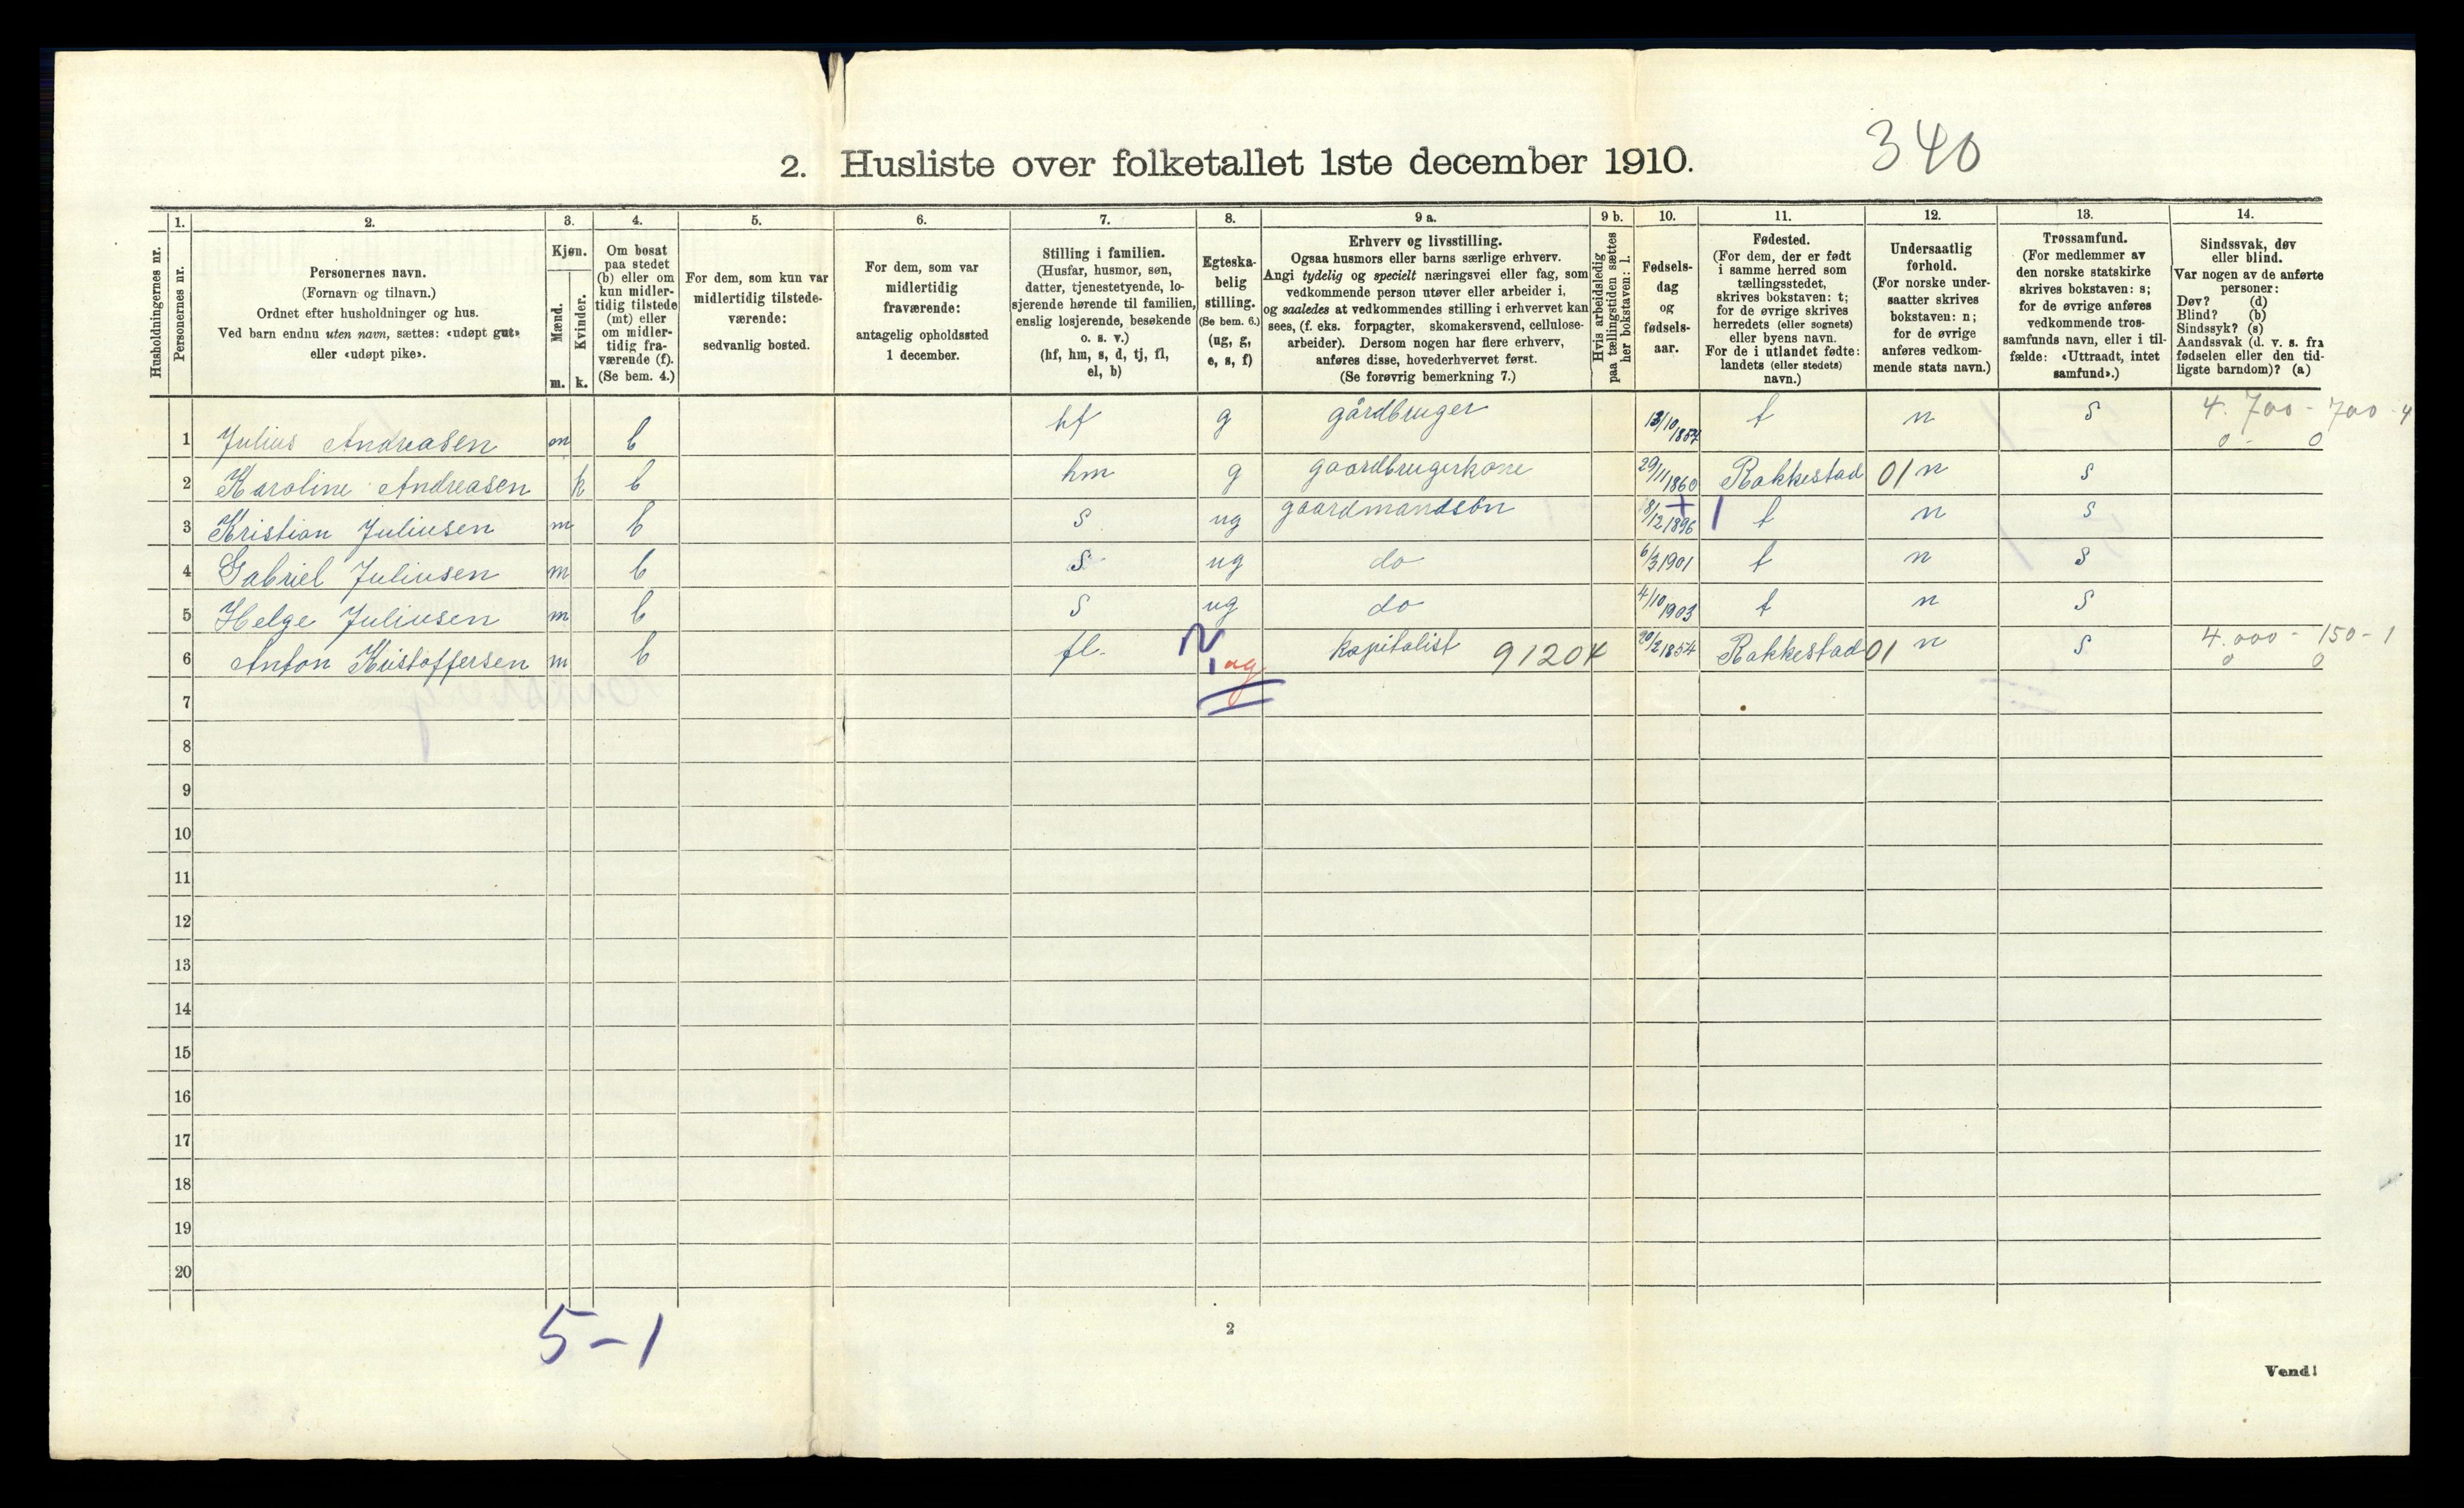 340
2. Husliste over folketallet 1ste december 1910.
Husholdningernes nr.
1.
Personernes nr.
2.
Personernes navn.
(Fornavn og tilnavn.)
Ordnet efter husholdninger og hus.
Ved barn endnu uten navn, sættes: «udøpt gut»
eller «udøpt pike».
3.
Kjøn.
Mænd.
Kvinder.
m. k.
4.
Om bosat
paa stedet
(b) eller om
kun midler-
tidig tilstede
(mt) eller
om midler-
tidig fra-
værende (f).
(Se bem. 4.)
5.
For dem, som kun var
midlertidig tilstede-
værende:
sedvanlig bosted.
6.
For dem, som var
midlertidig
fraværende:
antagelig opholdssted
1 december.
7.
Stilling i familien.
(Husfar, husmor, søn,
datter, tjenestetyende, lo-
sjerende hørende til familien,
enslig losjerende, besøkende
o. s. v.)
(hf, hm, s, d, tj, fl,
el, b)
8.
Egteska-
belig
stilling.
(Se bem. 6.)
(ug, g,
e, s, f)
9 a.
Erhverv og livsstilling.
Ogsaa husmors eller barns særlige erhverv.
Angi tydelig og specielt næringsvei eller fag, som
vedkommende person utøver eller arbeider i,
og saaledes at vedkommendes stilling i erhvervet kan
sees, (f. eks. forpagter, skomakersvend, cellulose-
arbeider). Dersom nogen har flere erhverv,
anføres disse, hovederhvervet først.
(Se forøvrig bemerkning 7.)
9 b.
Hvis arbeidsledig
paa tællingstiden sættes
her bokstaven: l.
10.
Fødsels-
dag
og
fødsels-
aar.
11.
Fødested.
(For dem, der er født
i samme herred som
tællingsstedet,
skrives bokstaven: t;
for de øvrige skrives
herredets (eller sognets)
eller byens navn.
For de i utlandet fødte:
landets (eller stedets)
navn.)
12.
Undersaatlig
forhold.
(For norske under-
saatter skrives
bokstaven: n;
for de øvrige
anføres vedkom-
mende stats navn.)
13.
Trossamfund.
(For medlemmer av
den norske statskirke
skrives bokstaven: s;
for de øvrige anføres
vedkommende tros-
samfunds navn, eller i til-
fælde: «Uttraadt, intet
samfund».)
14.
Sindssvak, døv
eller blind.
Var nogen av de anførte
personer:
Døv? (d)
Blind? (b)
Sindssyk? (s)
Aandssvak (d. v. s. fra
fødselen eller den tid-
ligste barndom)? (a)
1 Julius Andreasen m b hf g gårdbruger 13/10 1857 t n s 4.700 - 700 - 4
0 - 0
2 Karoline Andreasen k b hm g gaardbrugerkone 29/11 1860 Rakkestad 01 n s
3 Kristian Juliusen m b s ug gaardmandsön 18/12 1896 t n s
4 Gabriel Juliusen m b s ug do 6/3 1901 t n s
5 Helge Juliusen m b s ug do 4/10 1903 t n s
6 Anton Kristoffersen m b fl. ug kapitalist 91204 20/2 1854 Rakkestad 01 n s 4.000 - 150 - 1
0 0
7
8
9
10
11
12
13
14
15
16
17
18
19
20
5-1
2
Vend!